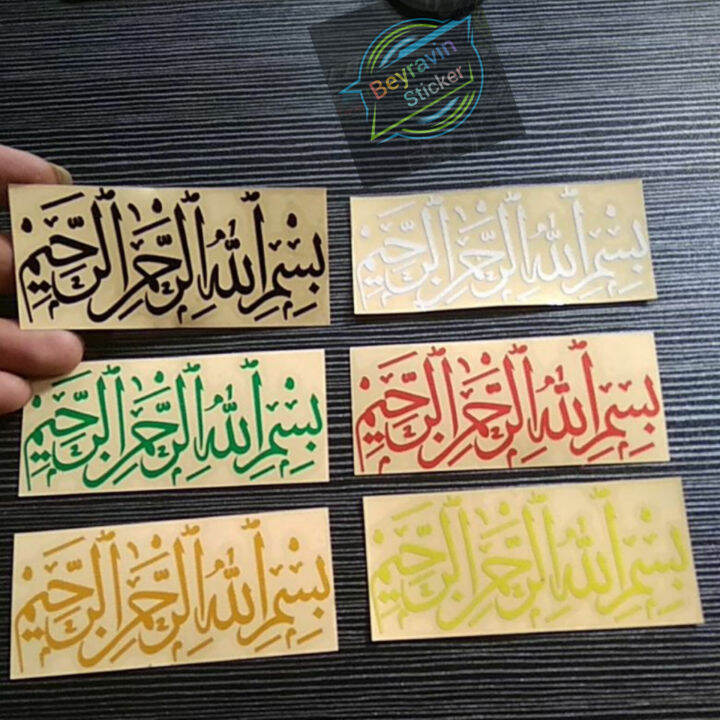 Beyravin
Sticker
بِسْمِ اللّٰهِ الرَّحْمٰنِ الرَّحِيْمِ
بِسْمِ اللّٰهِ الرَّحْمٰنِ الرَّحِيْمِ
بِسْمِ اللّٰهِ الرَّحْمٰنِ الرَّحِيْمِ
بِسْمِ اللّٰهِ الرَّحْمٰنِ الرَّحِيْمِ
بِسْمِ اللّٰهِ الرَّحْمٰنِ الرَّحِيْمِ
بِسْمِ اللّٰهِ الرَّحْمٰنِ الرَّحِيْمِ